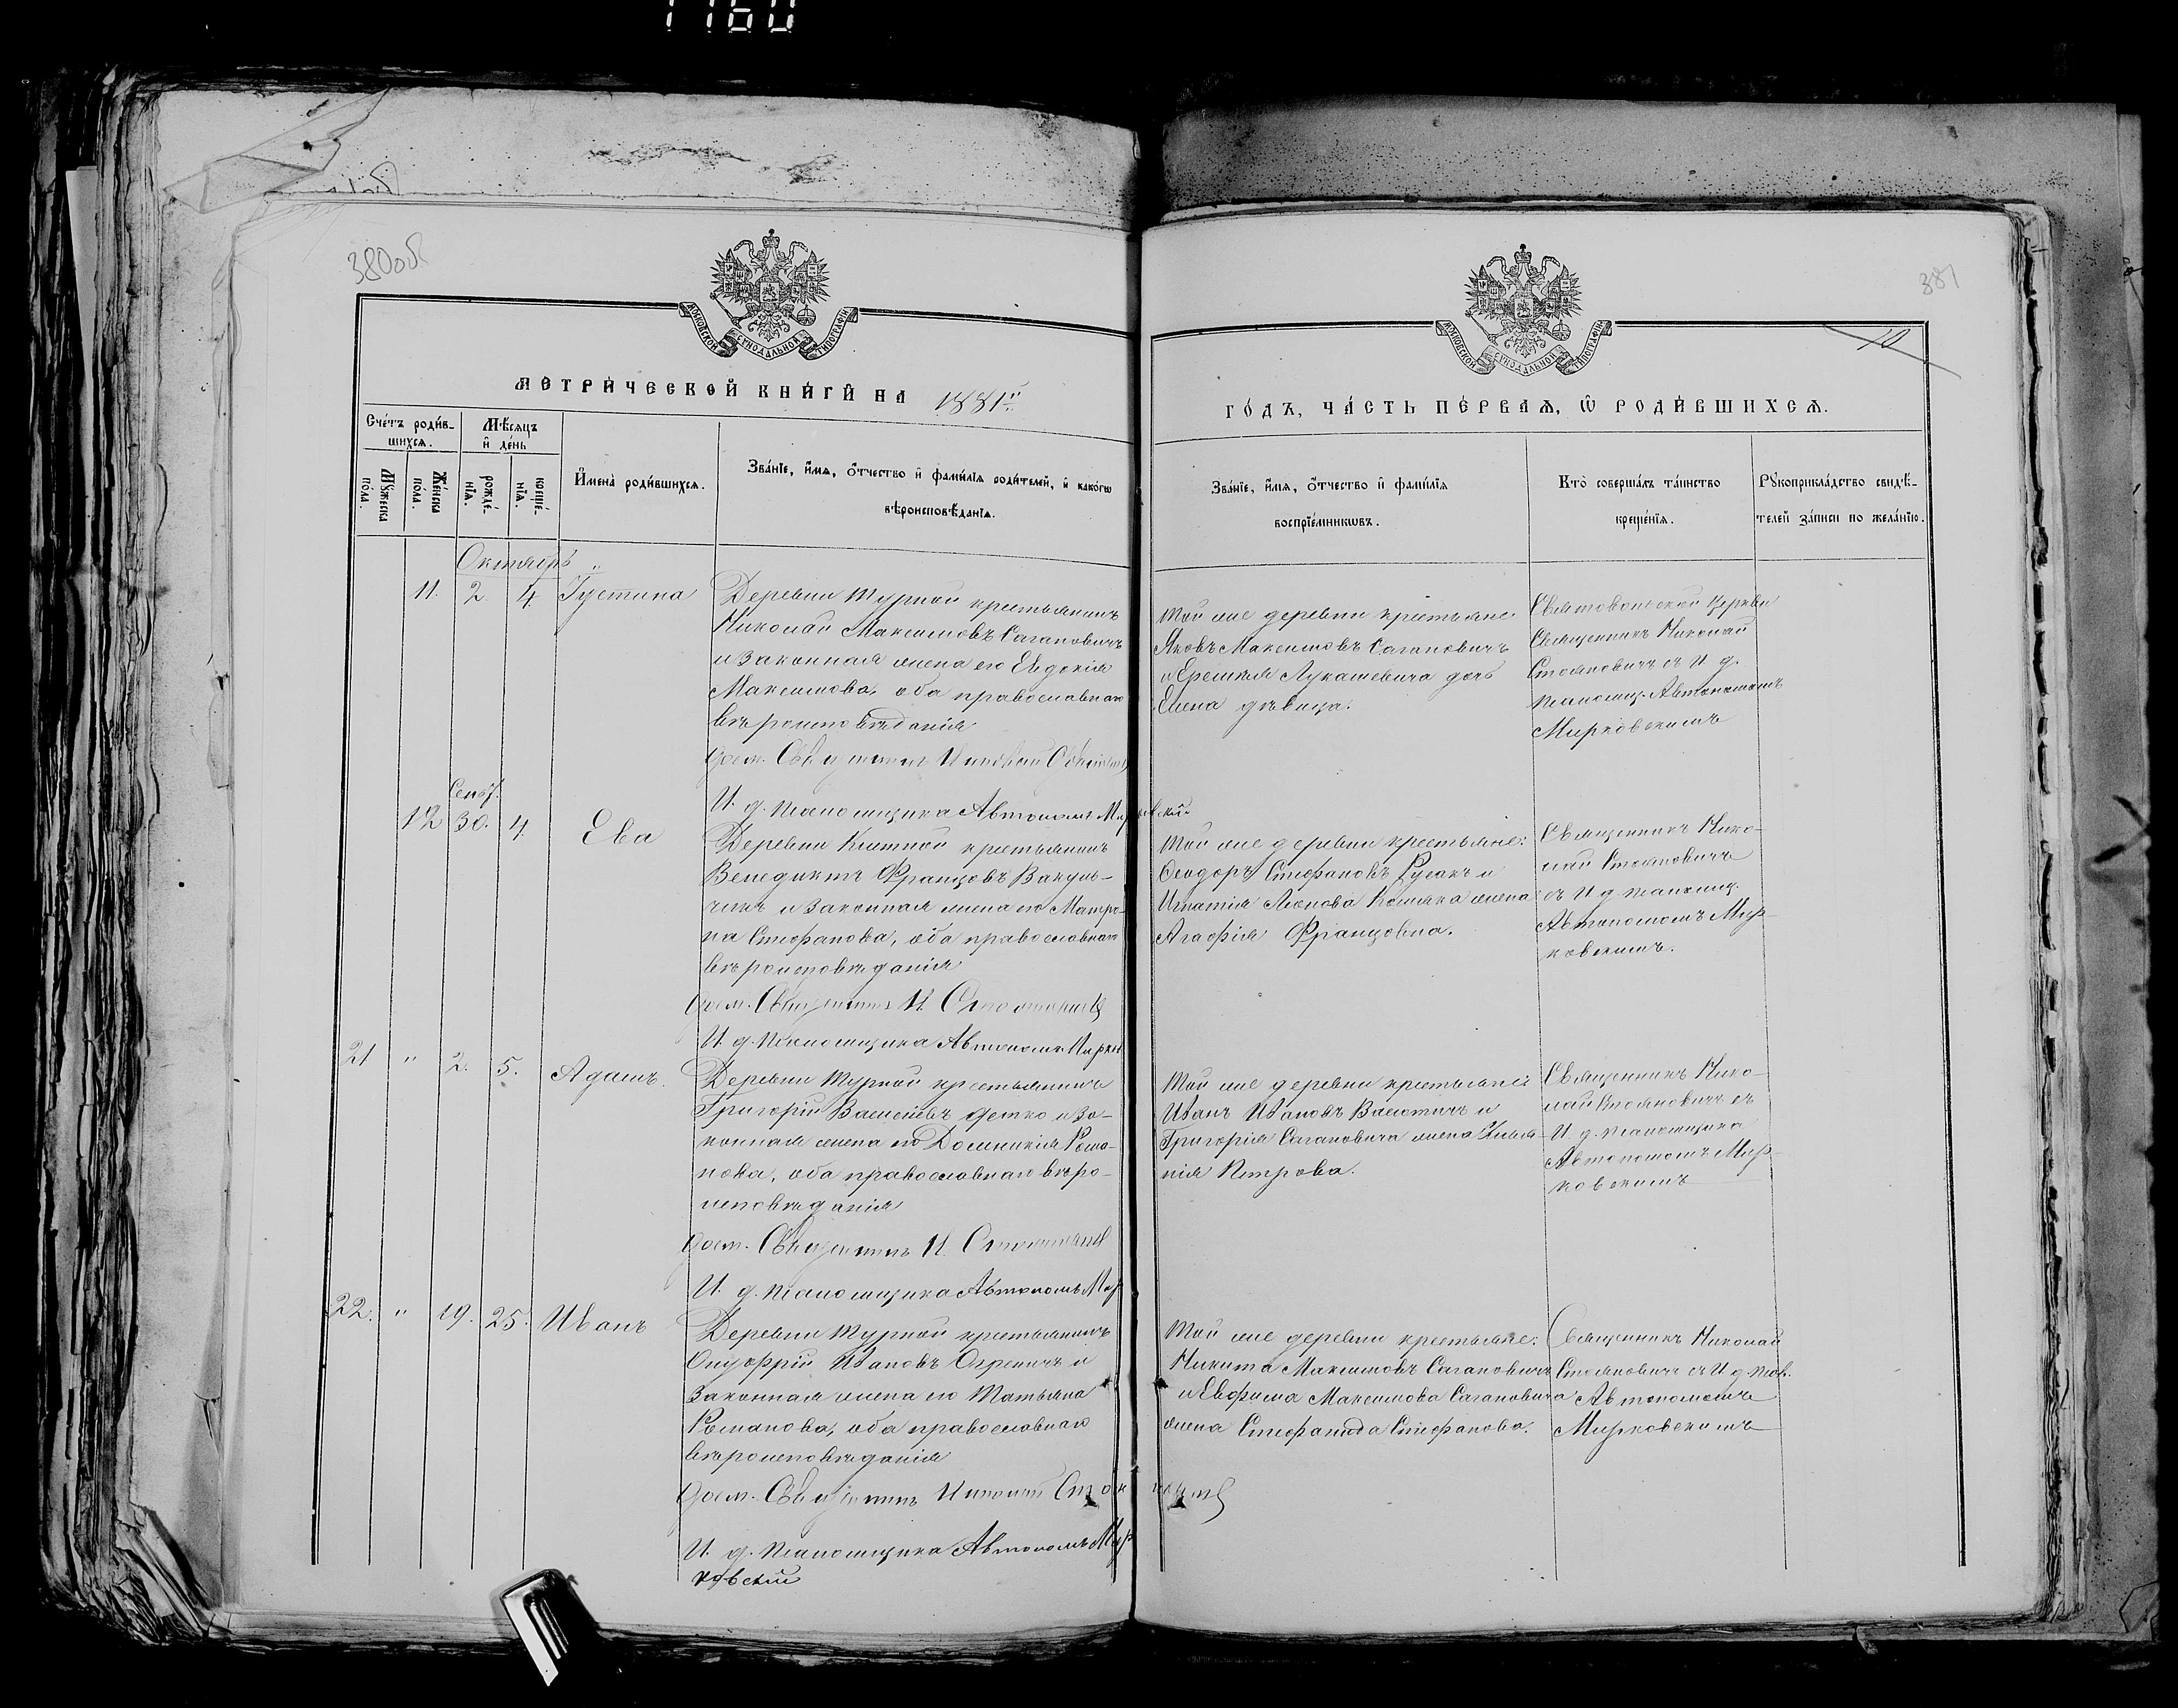 1160
380об
381
10
МОСКОВСКОЙ СѴНОДАЛЬНОЙ ТИПОГРАФІИ
МОСКОВСКОЙ СѴНОДАЛЬНОЙ ТИПОГРАФІИ
МЕТРИ́ЧЕСКОЙ КНИ́ГИ НА 1881й
ГО́ДЪ, ЧА́СТЬ ПЕ́РВАЯ, Ѡ РОДИ́ВШИХСЯ.
Сче́тъ роди́в-
шихся.
Мѣ́сяцъ
и де́нь
Му́жеска
по́ла.
Же́нска
по́ла.
рожде́-
нїя.
креще́-
нїя.
И́мена̀ роди́вшихся.
Зва́нїе, и́мя, о́тчество и фами́лїя роди́телей, и како́гѡ
вѣроисповѣ́данїя.
Зва́нїе, и́мя, о́тчество и фами́лїя
воспрїе́мникѡвъ.
Кто̀ соверша́лъ та́инство
креще́нїя.
Рꙋкоприкла́дство свидѣ́-
телей за́писи по жела́нїю.
Октябрь
11. 2. 4. Іустина
Деревни Турной крестьянинъ
Николай Максимовъ Сагановичъ
и законная жена его Евдокія
Максимова, оба православнаго
вѣроисповѣданія
Священникъ Николай
И. д. псаломщика Автономъ Мирковскій
Той же деревни крестьяне
Яковъ Максимовъ Сагановичъ
и Еремія Лукашевича дочь
Елена дѣвица.
церкви
Священникъ Николай
Стояновичъ съ И. д.
псаломщ. Автономомъ
Мирковскимъ
Сент.
12 30. 4. Ева
Деревни крестьянинъ
Венедиктъ Францовъ Вакуль-
чикъ и законная жена его Матро-
на Стефанова, оба православнаго
вѣроисповѣданія
Священникъ Н. Стояновичъ
И. д. псаломщика Автономъ Мирков
Той же деревни крестьяне:
Ѳеодоръ Стефановъ и
Игнатія Леонова жена
Агафія Францовна.
Священникъ Нико-
лай Стояновичъ
съ И. д. псаломщ.
Автономомъ Мир-
ковскимъ.
21 " 2. 5. Адамъ.
Деревни Турной крестьянинъ
Григорій Васильевъ и за-
конная жена его Домникія Рома-
нова, оба православнаго вѣро-
исповѣданія
Священникъ Н. Стояновичъ
И. д. псаломщика Автономъ Мир
Той же деревни крестьяне:
Иванъ Ивановъ и
Григорія Сагановича жена
Петрова.
Священникъ Нико-
лай Стояновичъ съ
И. д. псаломщика
Автономомъ Мир-
ковскимъ
22. " 19. 25. Иванъ
Деревни Турной крестьянинъ
Онуфрій Ивановъ и
законная жена его Татьяна
Романова, оба православнаго
вѣроисповѣданія
Священникъ Николай Стояновичъ
И. д. псаломщика Автономъ Мир
ковскій
Той же деревни крестьяне:
Никита Максимовъ Сагановичъ
и Евфима Максимова Сагановича
жена Стефанида Стефанова.
Священникъ Николай
Стояновичъ съ И. д. псал.
Автономомъ
Мирковскимъ